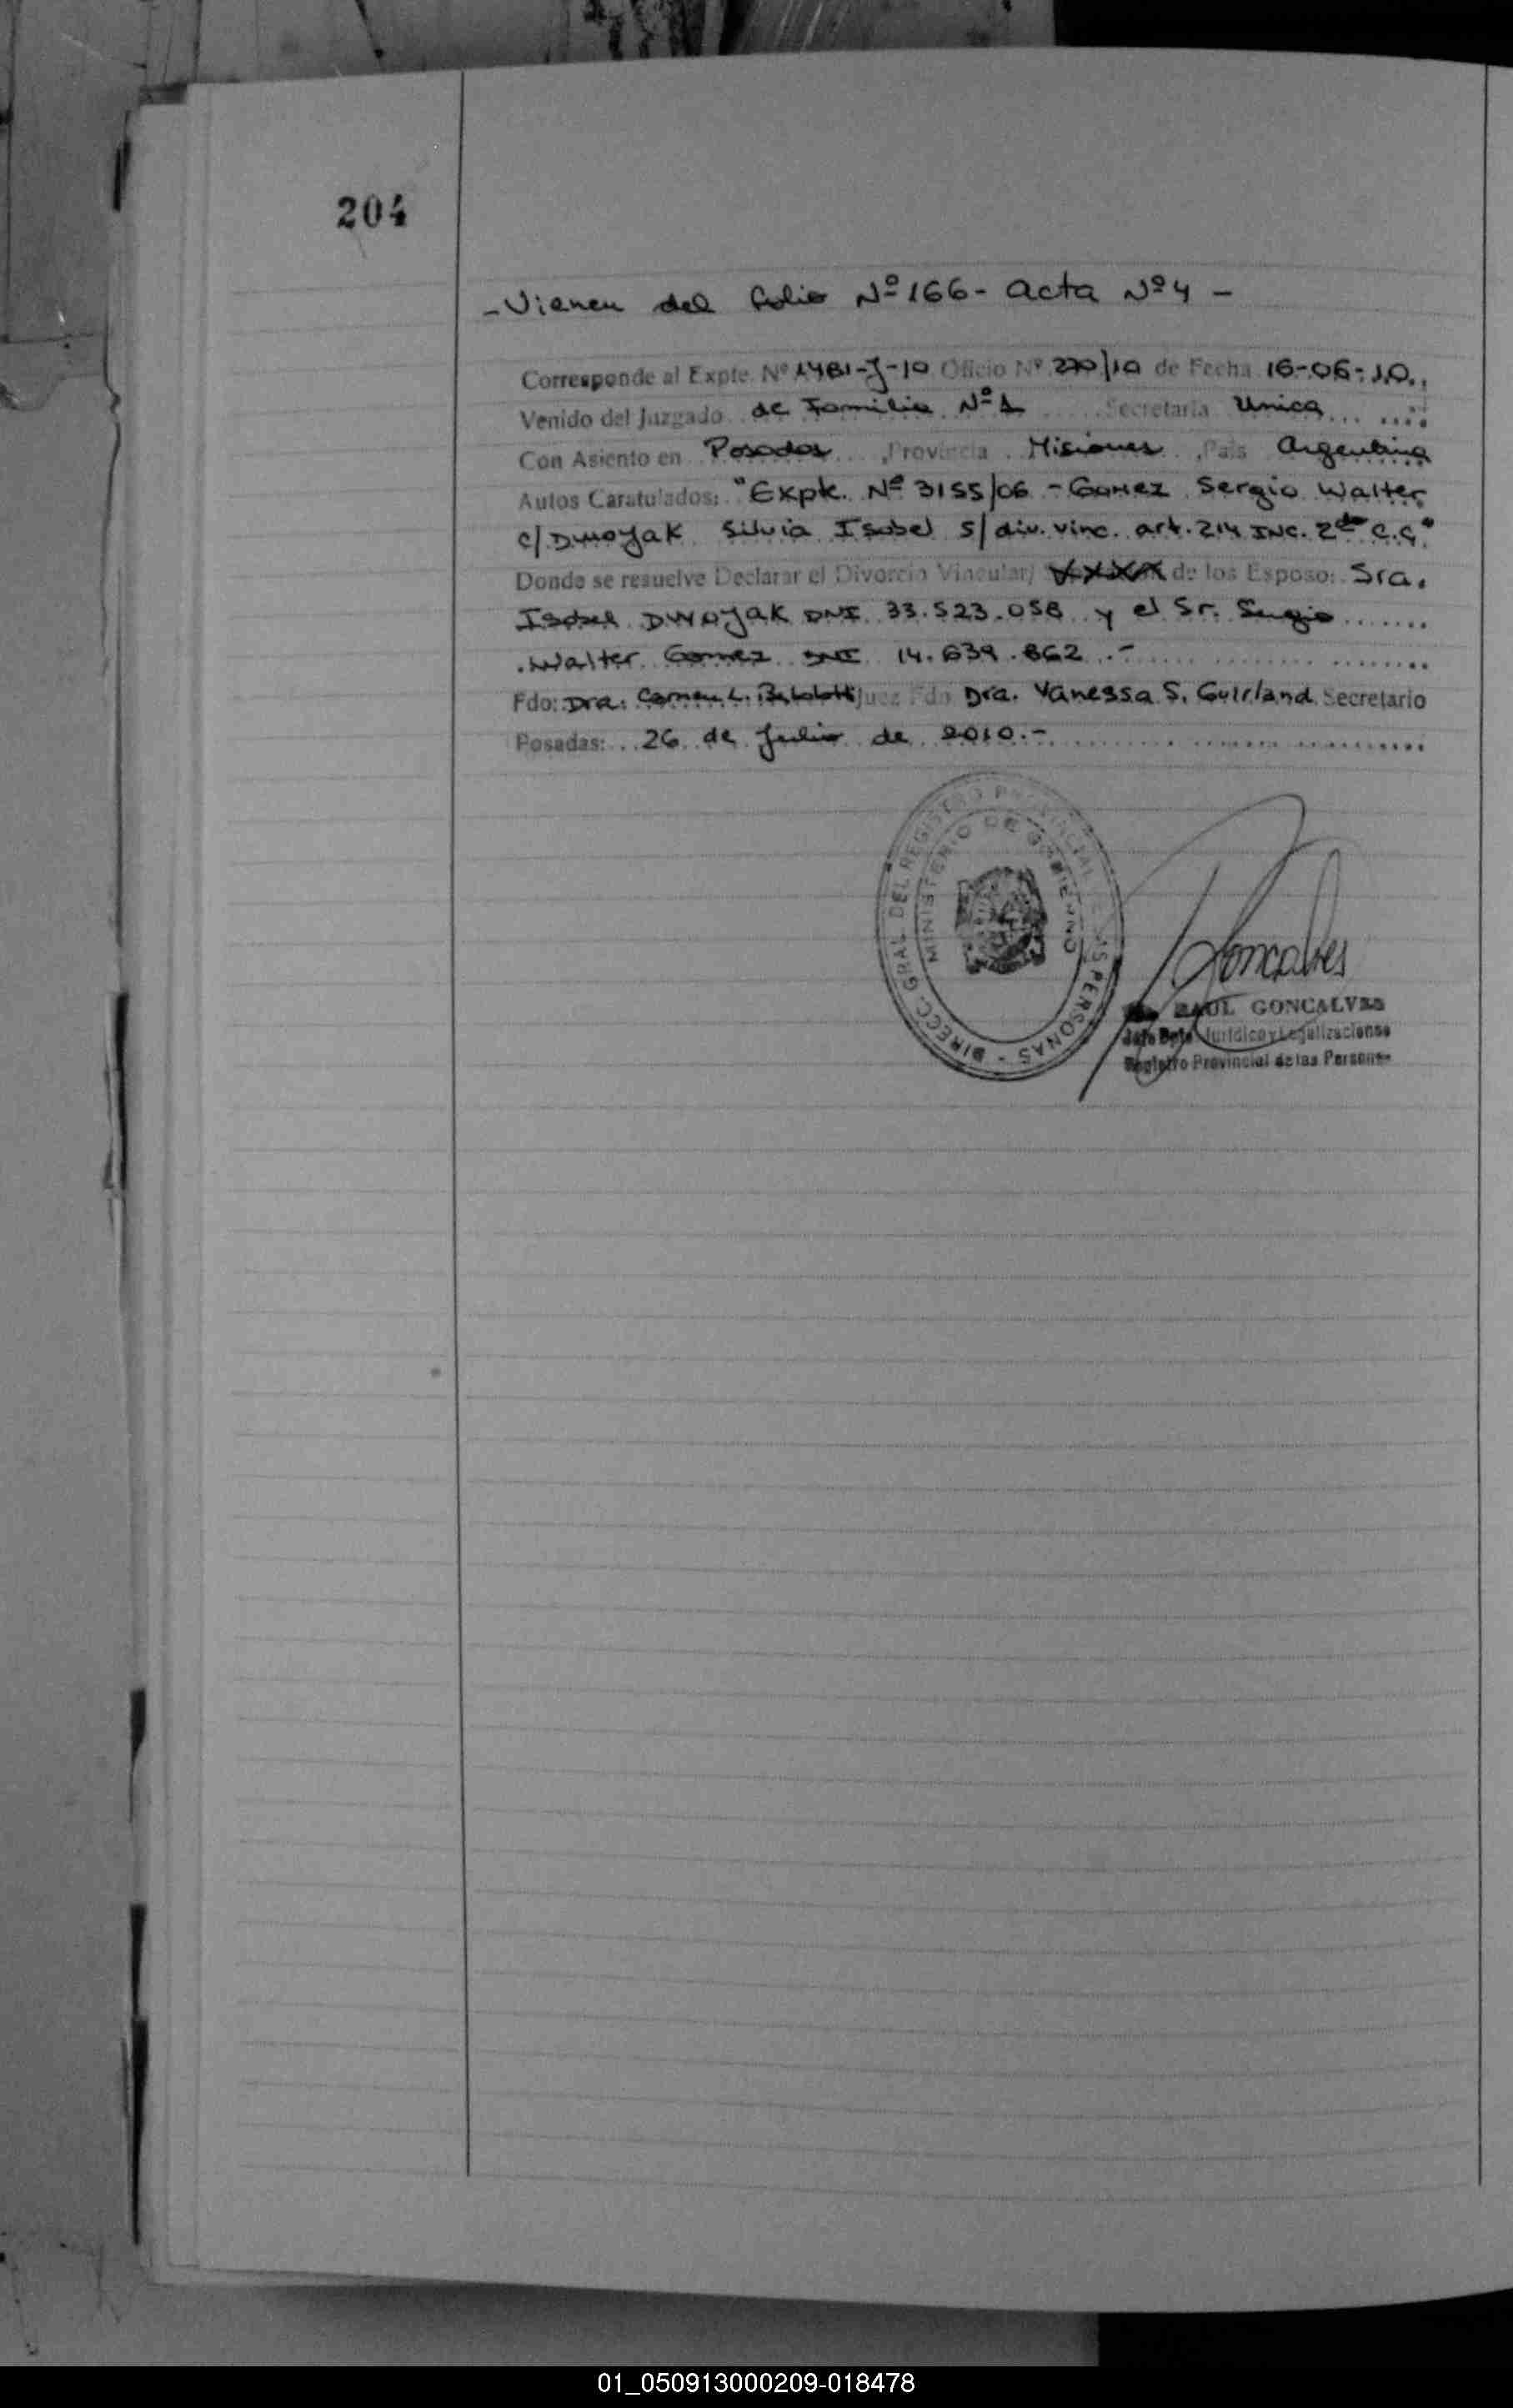 204
- Vienen del folio Nº 166 - acta Nº 4 -
Corresponde al Expte. Nº 1481-J-10 Oficio Nº 270/10 de Fecha 16-06-10.
Venido del Juzgado de Familia Nº 1 Secretaría Unica
Con Asiento en Posadas, Provincia Misiones, País Argentina
Autos Caratulados: "Expte. Nº 3155/06 - Gomez Sergio Walter
c/ Dwoyak Silvia Isabel s/ div. vinc. art. 214 INC. 2do C.C."
Donde se resuelve Declarar el Divorcio Vincular/ de los Esposo: Sra.
Isabel Dwoyak DNI 33.523.058 y el Sr. Sergio
Walter Gomez DNI 14.639.862.-
Fdo: Dra. Carmen L. Juez Fdo Dra. Vanessa S. Guirland Secretario
Posadas: 26 de Julio de 2010.-
DIRECC. GRAL. DEL REGISTRO PROVINCIAL DE LAS PERSONAS -
MINISTERIO DE GOBIERNO
Goncalves
RAUL GONCALVES
Jefe Dpto. Jurídico y Legalizaciones
Registro Provincial de las Personas
01_050913000209-018478